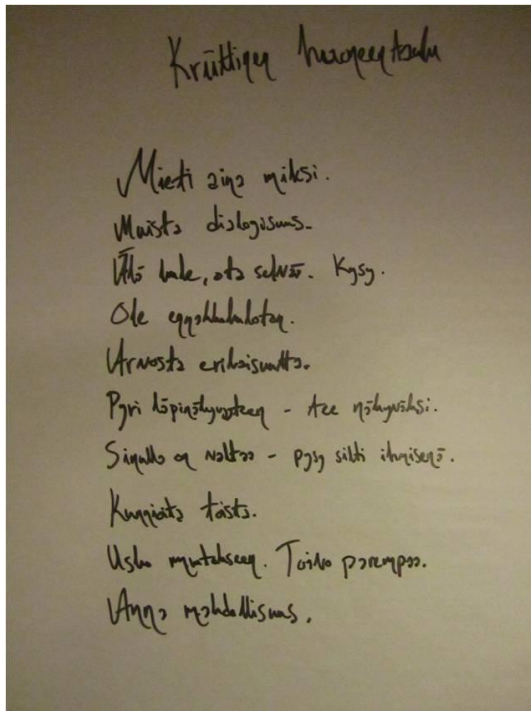 Kriittinen huoneentaulu
Mieti aina miksi.
Muista dialogisuus.
Älä luule, ota selvää. Kysy.
Ole ennakkoluuloton.
Arvosta erilaisuutta.
Pyri läpinäkyvyyteen - tee näkyväksi.
Sinulla on valtaa - pysy silti ihmisenä.
Kunnioita toista.
Usko muutokseen. Toivo parempaa.
Anna mahdollisuus.